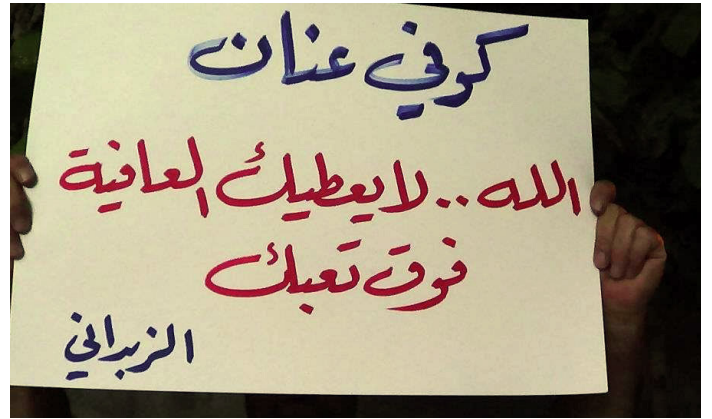 كوفي عنان
الله.. لا يعطيك العافية
فوق تعبك
الزبداني